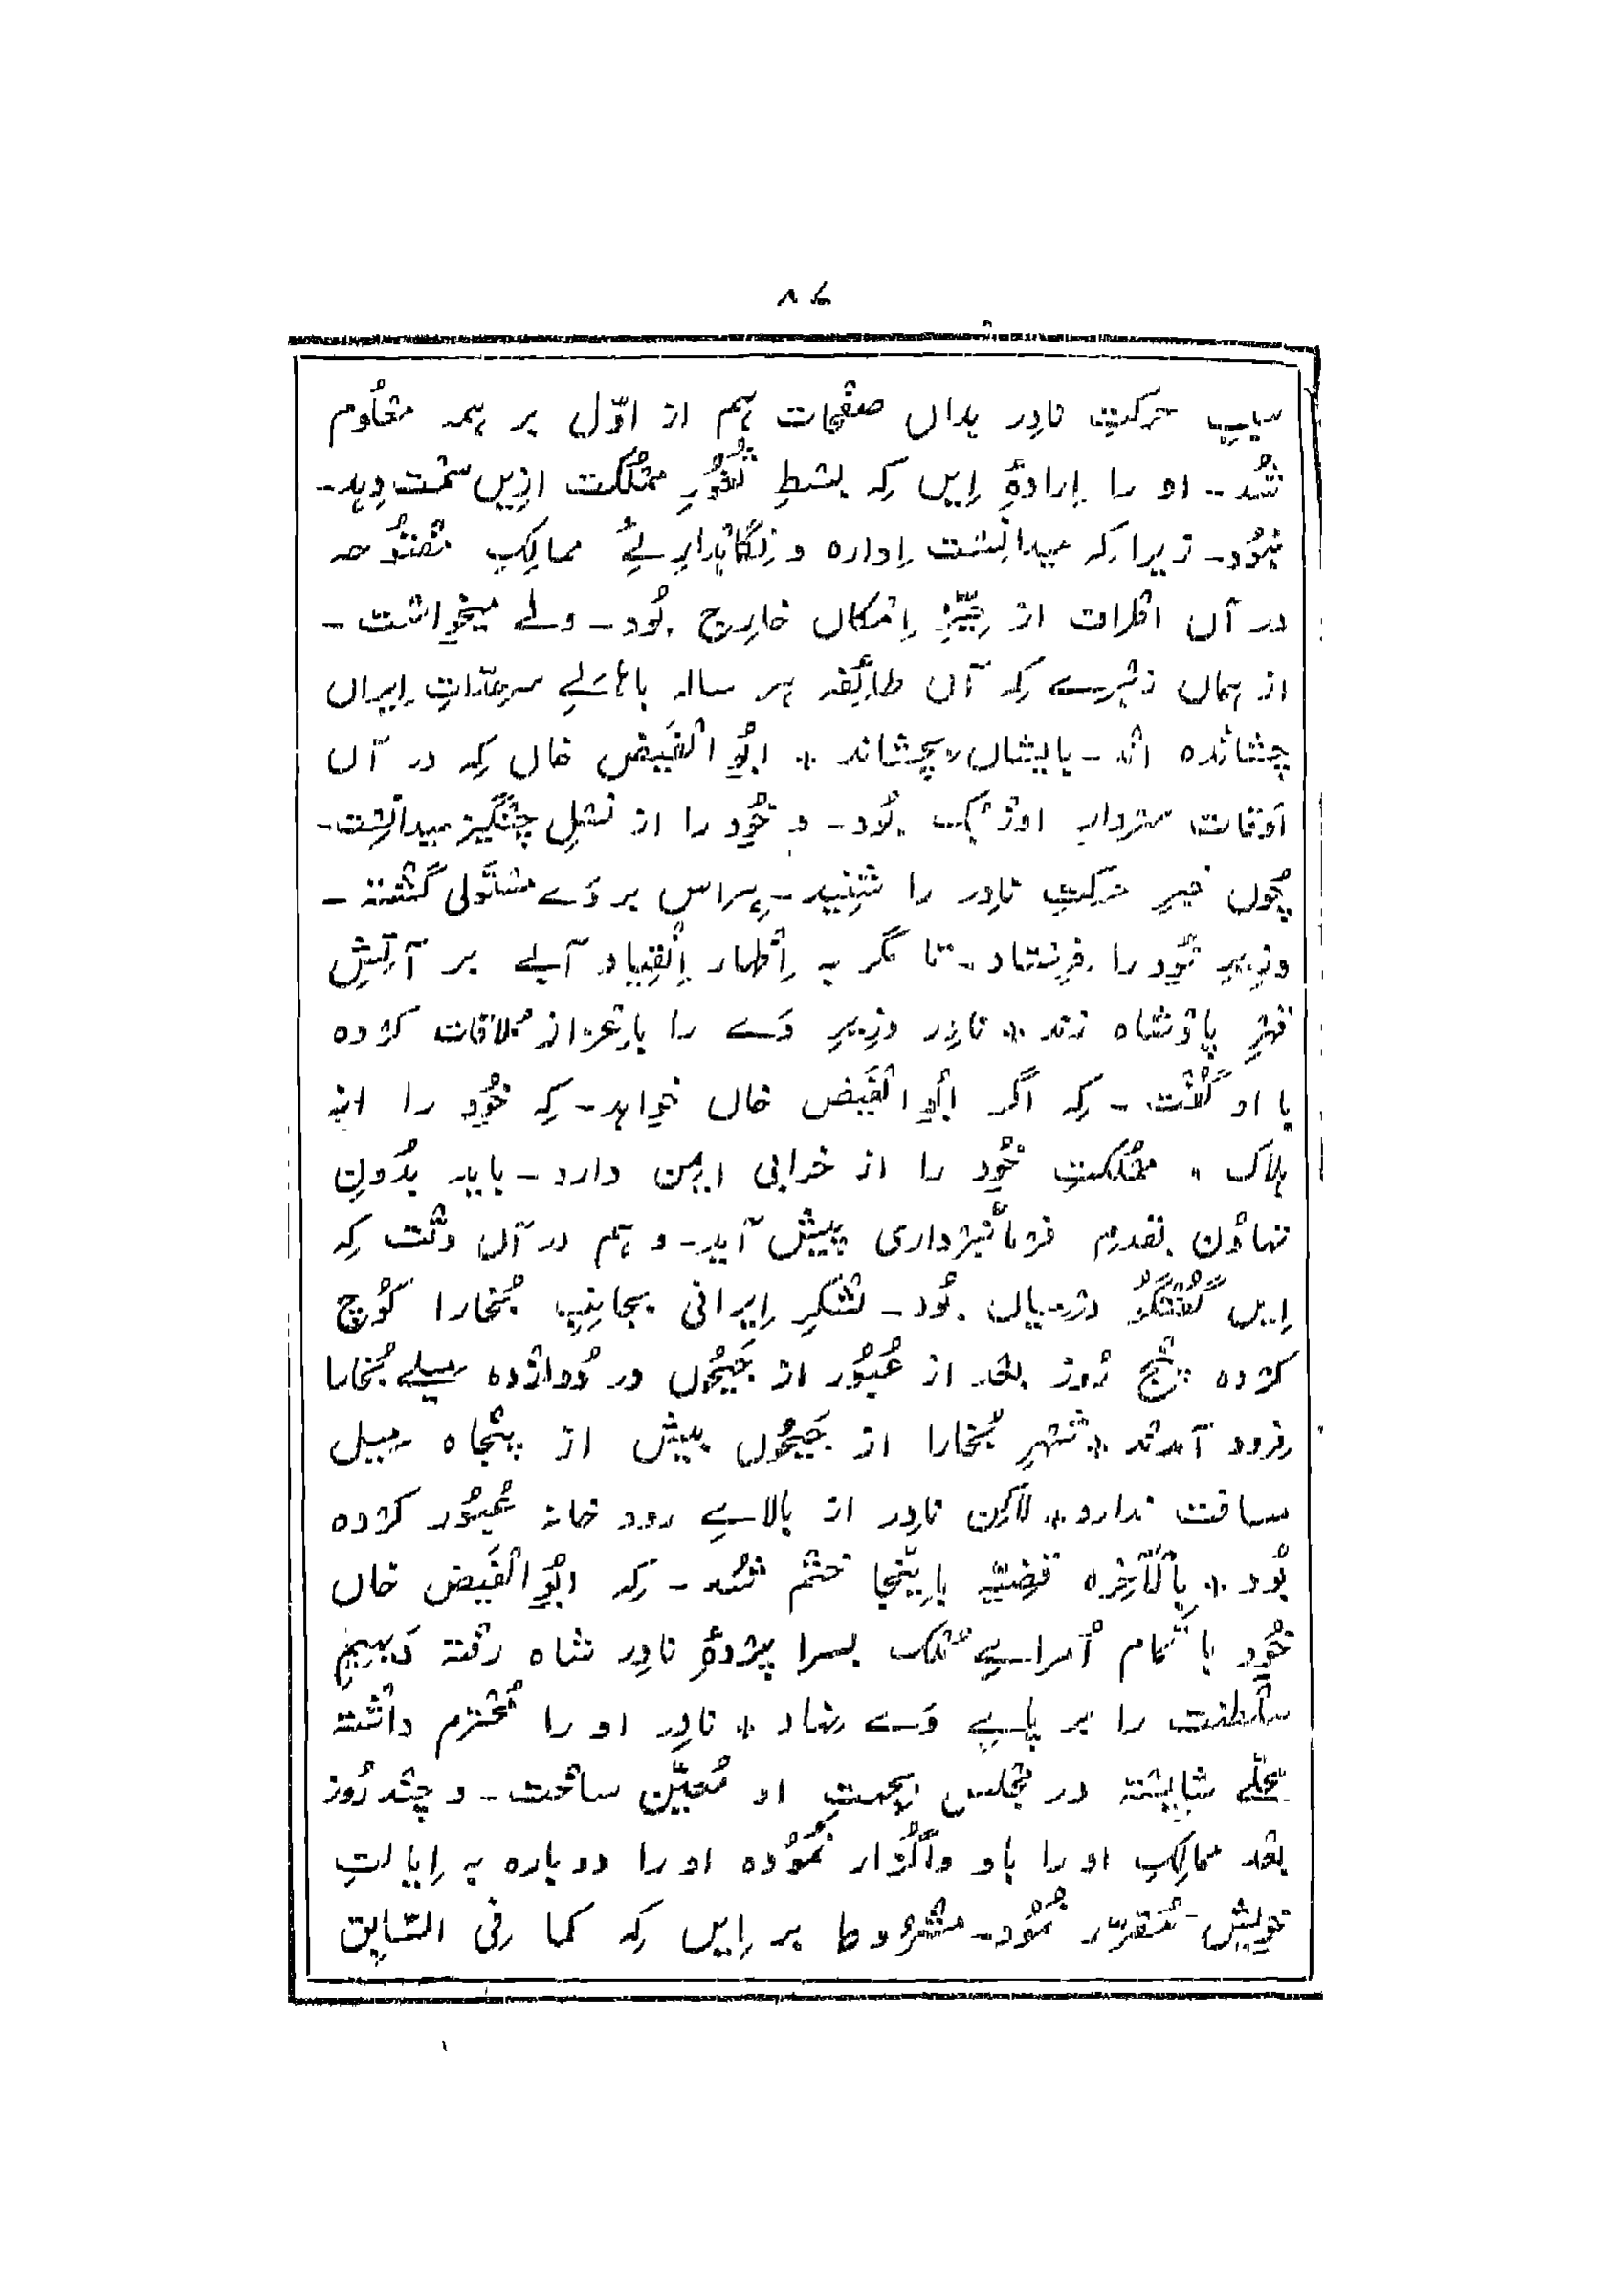 ۸۷
سببِ حرکتِ نادِر بداں صفحات ہم از اوّل بر ہمہ معلُوم
شُد۔ او را اِرادۂ اِیں کہ بسطِ ثُغُورِ مملکت ازیں سمت دِہد۔
نبُود۔ زیرا کہ میدانِست اِداره و نگاہداریٔ ممالکِ مفتُوحہ
در آں اطراف از حیّزِ اِمکاں خارِج بُود۔ ولے میخواست۔
از ہماں زہرے کہ آں طائِفہ ہر سالہ باہالیِ سرحدّاتِ اِیراں
چشاندہ اند۔ بایشاں بچشاند * ابُو الفَیض خاں کہ در آں
اَوقات سردارِ اوزبک بُود۔ و خُود را از نسلِ چنگیز میدانِست۔
چُوں خبرِ حرکتِ نادِر را شنِید۔ ہِراس بر وَے مستَولی گشتہ۔
وزیرِ خُود را فرِستاد۔ تا مگر بہ اِظہار اِنقِیاد آبے بر آتِشِ
قہرِ پادشاہ زند * نادِر وزیرِ وَے را باِعزاز مُلاقات کردہ
با او گُفت۔ کہ اگر ابُو الفَیض خاں خواہد۔ کہ خُود را از
ہلاک و مملکتِ خُود را از خرابی ایمن دارد۔ باید بدُونِ
تہاوُن بقدمِ فرمانبرداری پیش آید۔ و ہم در آں وقت کہ
اِیں گُفتگُو درمیاں بُود۔ لشکرِ اِیرانی بجانِبِ بُخارا کُوچ
کردہ پنج رُوز بعد از عُبُور از جَیحُوں در دُوازدہ میلے بُخارا
فرود آمدند * شہرِ بُخارا از جَیحُوں بیش از پنجاہ میل
مسافت ندارد * لٰکِن نادِر از بالاےِ رود خانہ عُبُور کردہ
بُود * بِالآخِرہ قضِیّہ باینجا ختم شُد۔ کہ ابُو الفَیض خاں
خُود با تمام اُمراےِ مُلک بسرا پردۂ نادِر شاہ رفتہ دَیہیمِ
سلطنت را بر پاےِ وَے نہاد * نادِر او را مُحترم داشتہ
محلّے شایستہ در مجلس بجہتِ او مُعیّن ساخت۔ و چند رُوز
بعد ممالکِ او را باو واگُزار نمُودہ او را دوبارہ بہ اِیالتِ
خویش مُقرّر نمُود۔ مشرُوط بر اِیں کہ کما فی السّابِق